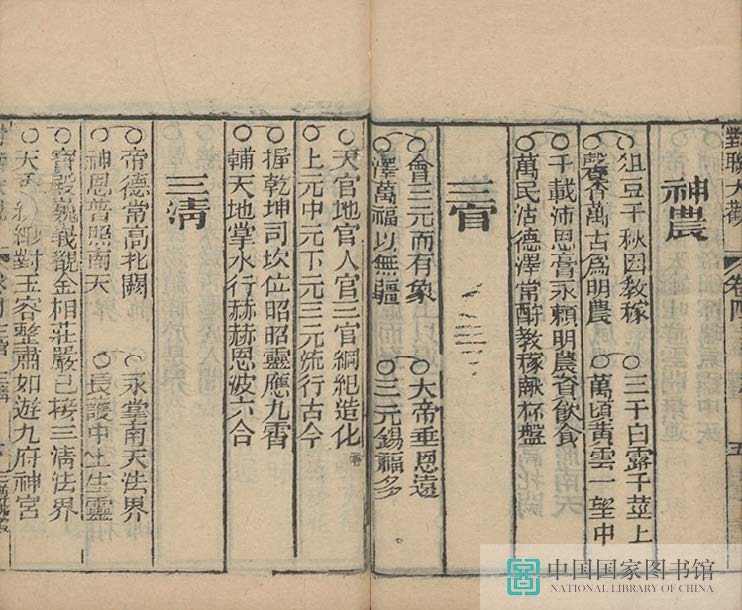 對聯大觀 卷四 五
神農
俎豆千秋因教稼 三千白露千莖上
馨香萬古爲明農 萬頃黃雲一望中
千載沛恩膏永賴明農資飲食
萬民沾德澤常酧教稼醊杯盤
三官
會三元而有象 大帝垂恩遠
澤萬福以無疆 三元錫福多
天官地官人官三官綱紀造化
上元中元下元三元流行古今
握乾坤司坎位昭昭靈應九霄
輔天地掌水行赫赫恩波六合
三清
帝德常高北闕 永掌南天法界
神恩普照南天 長護中土生靈
寶殿巍義覩金相莊嚴已接三清法界
對玉容整肅如遊九府神宮
中国国家图书馆
NATIONAL LIBRARY OF CHINA